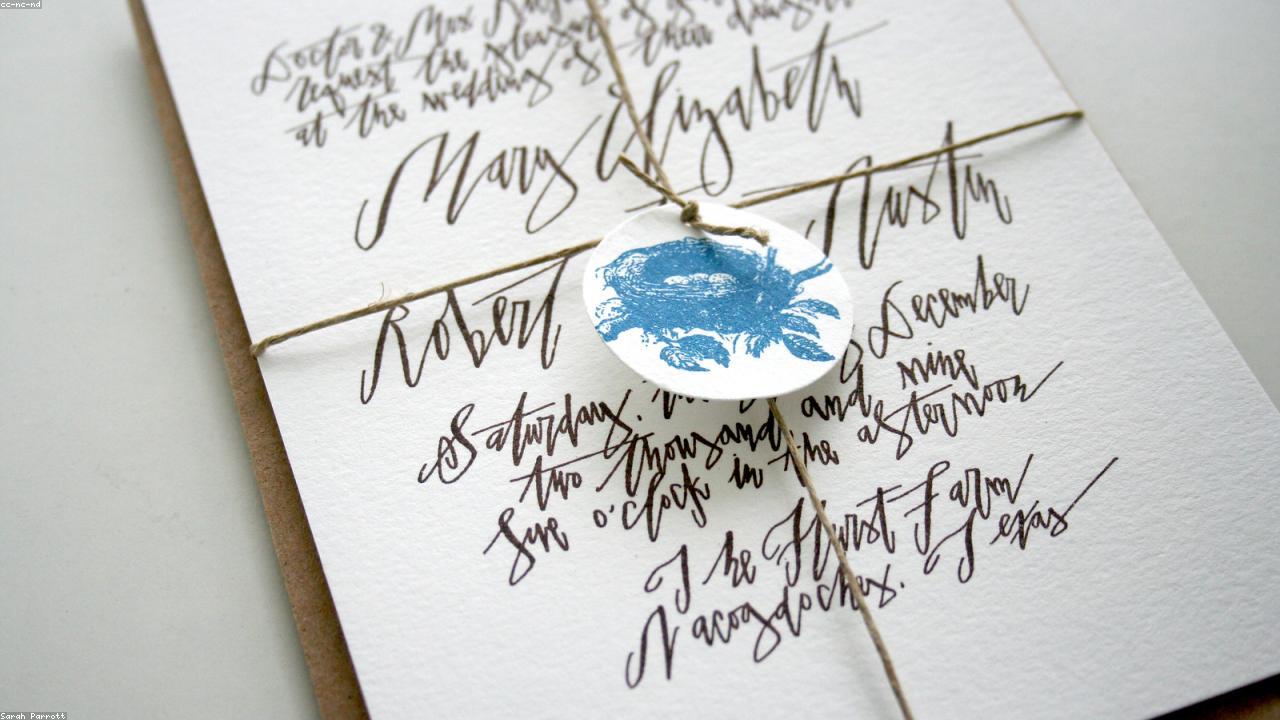 cc-nc-nd
Doctor & Mrs.
request the pleasure of
at the wedding of their daughter
Mary Elizabeth
Austin
Robert
December
Saturday,
two thousand and nine
five o'clock in the afternoon
The Hurst Farm
Nacogdoches. Texas
Sarah Parrott